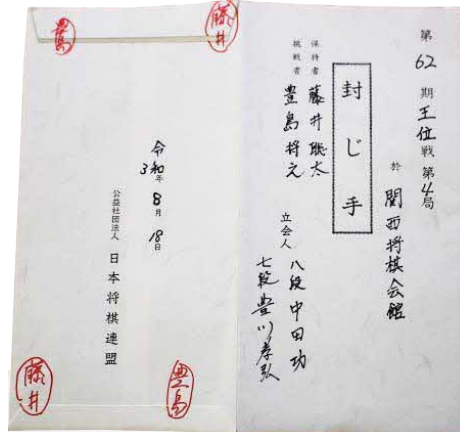 第62期王位戦第4局
於 関西将棋会館
封じ手
保持者 藤井聡太
挑戦者 豊島将之
立会人 八段 中田功
七段 豊川孝弘
豊島
藤井
令和3年8月18日
公益社団法人 日本将棋連盟
藤井
豊島